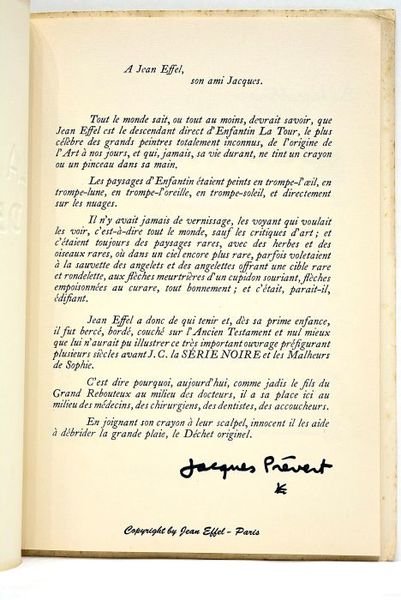 A Jean Effel,
son ami Jacques.
Tout le monde sait, ou tout au moins, devrait savoir, que
Jean Effel est le descendant direct d'Enfantin La Tour, le plus
célèbre des grands peintres totalement inconnus, de l'origine de
l'Art à nos jours, et qui, jamais, sa vie durant, ne tint un crayon
ou un pinceau dans sa main.
Les paysages d'Enfantin étaient peints en trompe-l'œil, en
trompe-lune, en trompe-l'oreille, en trompe-soleil, et directement
sur les nuages.
Il n'y avait jamais de vernissage, les voyant qui voulait
les voir, c'est-à-dire tout le monde, sauf les critiques d'art ; et
c'étaient toujours des paysages rares, avec des herbes et des
oiseaux rares, où dans un ciel encore plus rare, parfois voletaient
à la sauvette des angelets et des angelettes offrant une cible rare
et rondelette, aux flèches meurtrières d'un cupidon souriant, flèches
empoisonnées au curare, tout bonnement ; et c'était, parait-il,
édifiant.
Jean Effel a donc de qui tenir et, dès sa prime enfance,
il fut bercé, bordé, couché sur l'Ancien Testament et nul mieux
que lui n'aurait pu illustrer ce très important ouvrage préfigurant
plusieurs siècles avant J.C. la SÉRIE NOIRE et les Malheurs
de Sophie.
C'est dire pourquoi, aujourd'hui, comme jadis le fils du
Grand Rebouteux au milieu des docteurs, il a sa place ici au
milieu des médecins, des chirurgiens, des dentistes, des accoucheurs.
En joignant son crayon à leur scalpel, innocent il les aide
à débrider la grande plaie, le Déchet originel.
Jacques Prévert
Copyright by Jean Effel - Paris